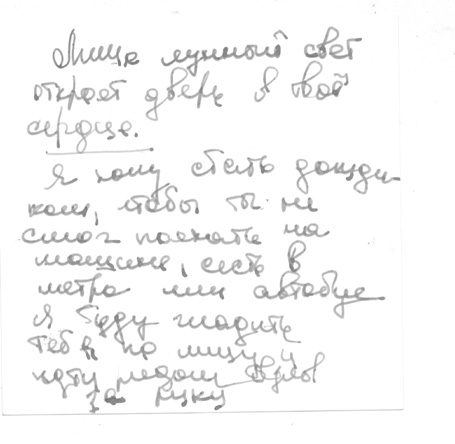 Лишь лунный свет
откроет дверь в твоё
сердце.
Я хочу стать дожди-
ком, чтобы ты не
смог поехать на
машине, сесть в
метро или автобус
Я буду гладить
тебя по лицу и
идти рядом взяв
за руку